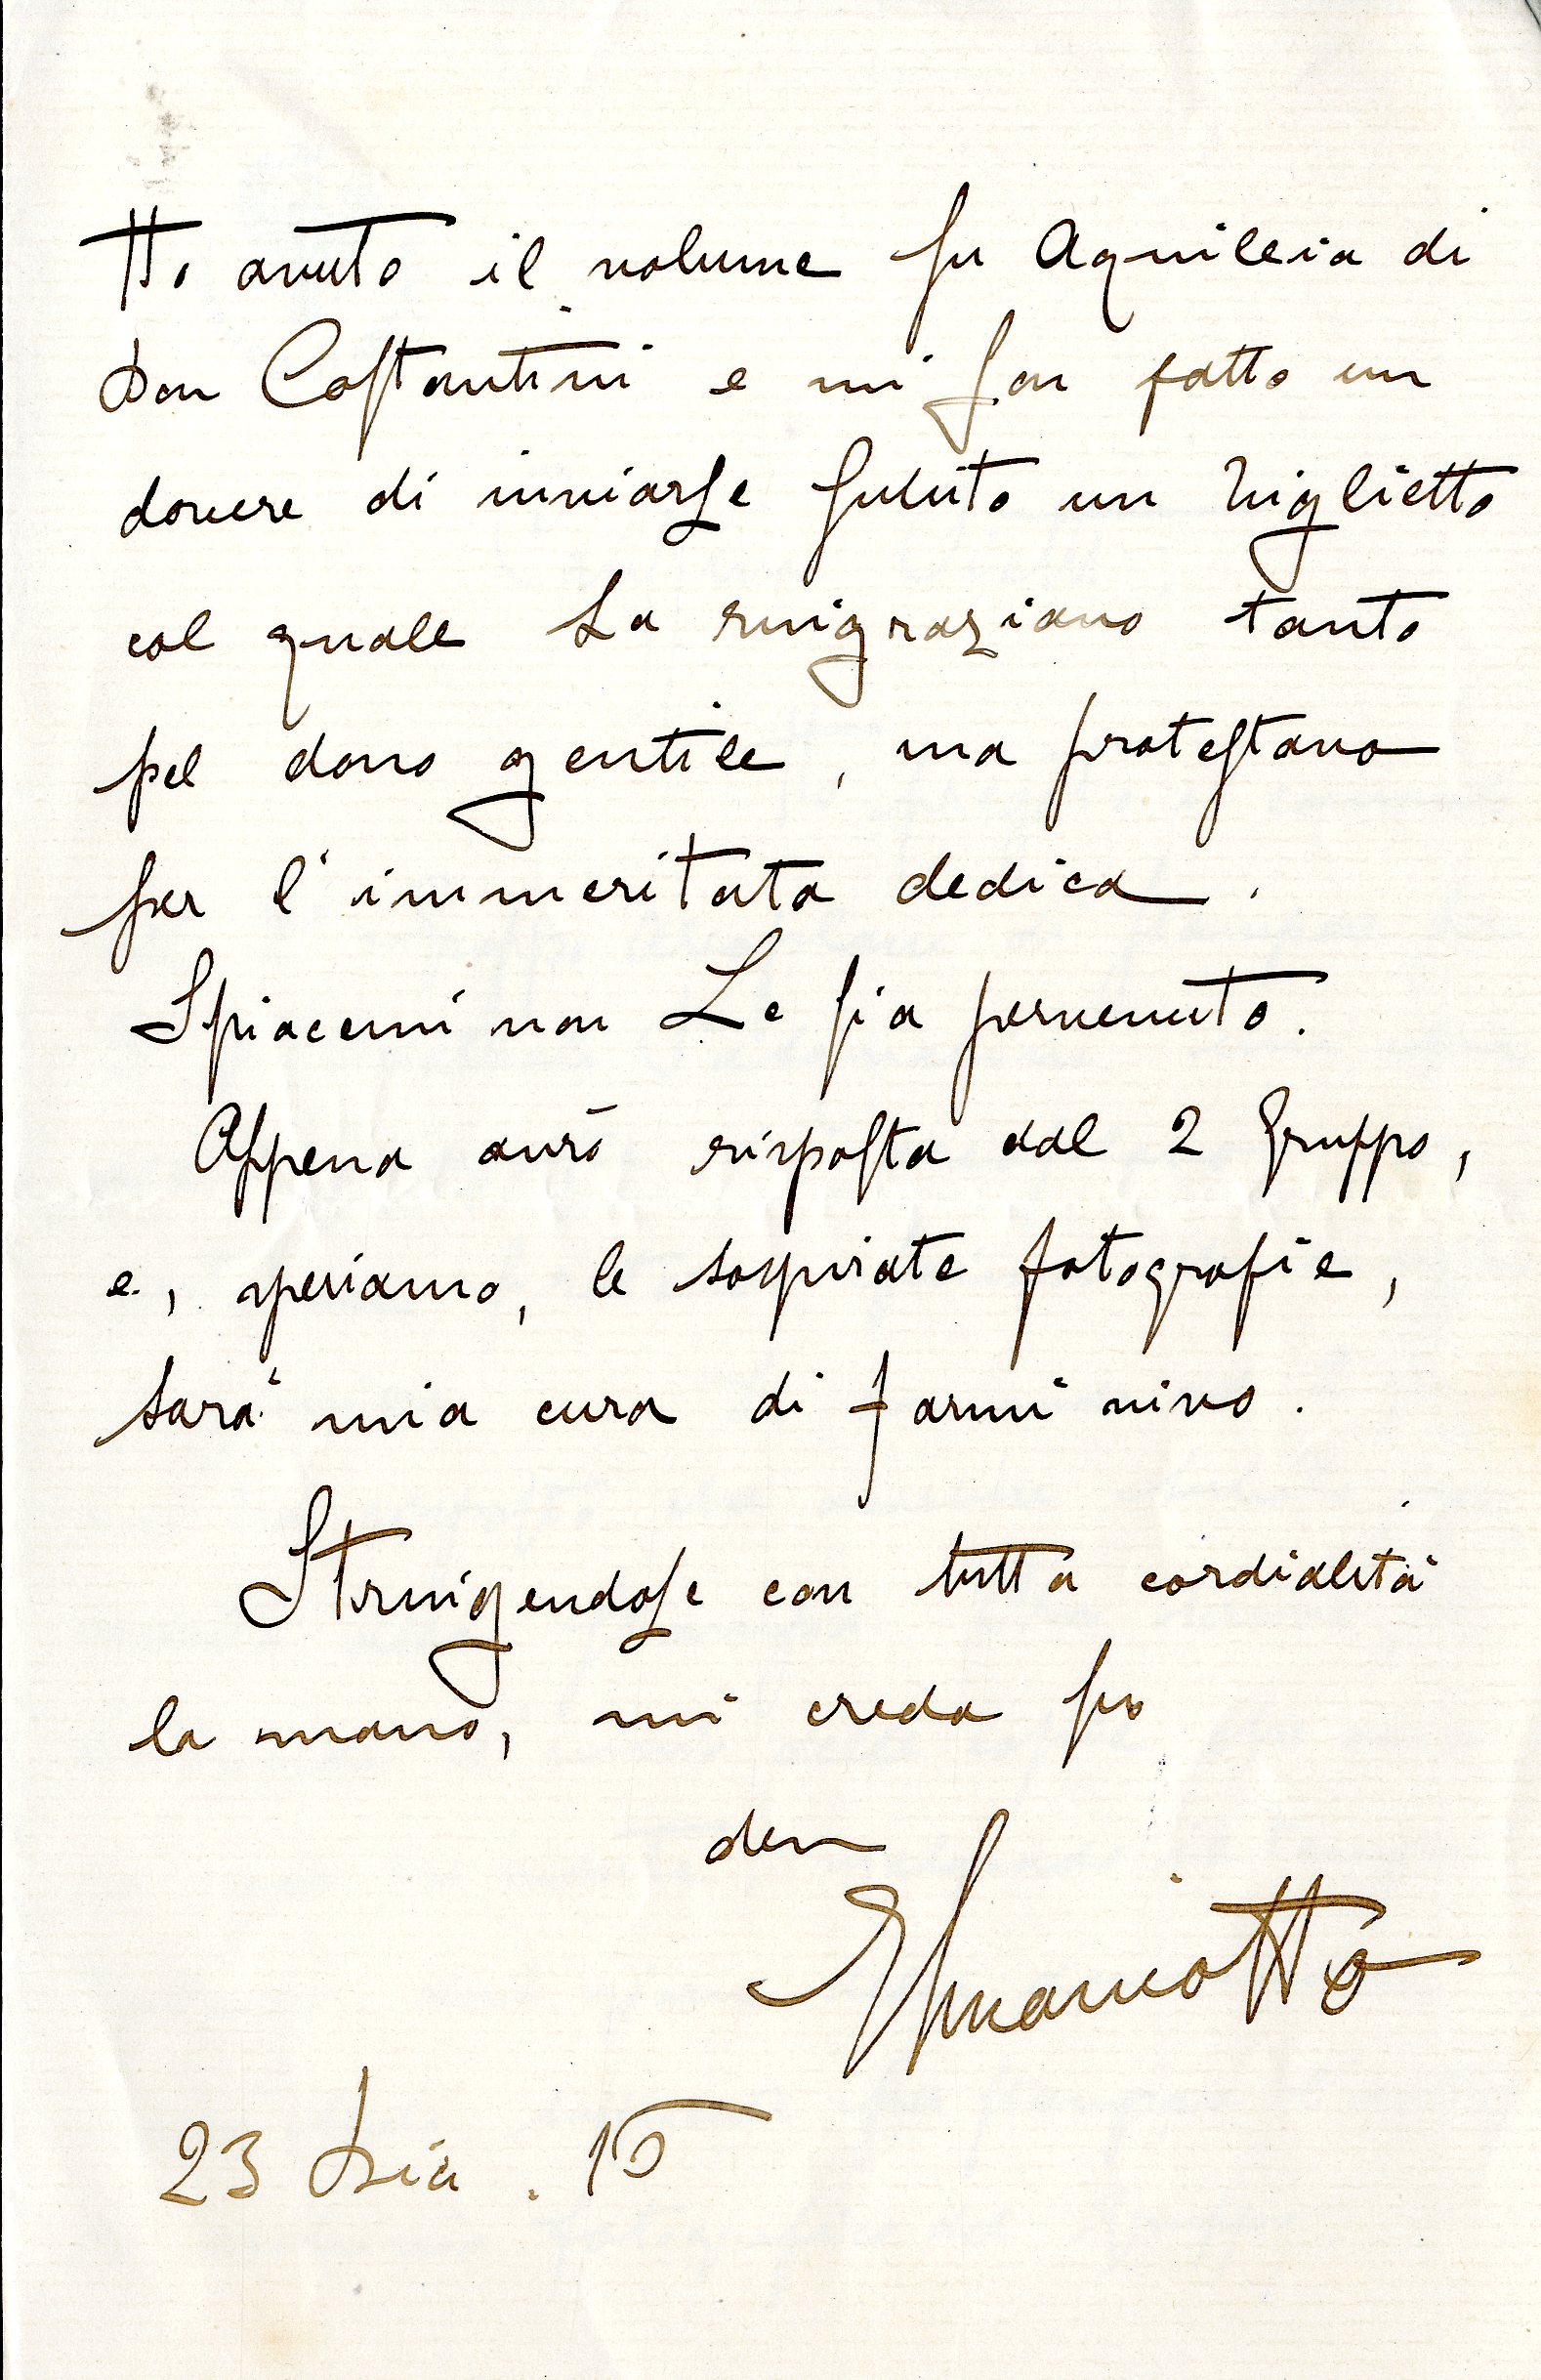 Ho avuto il volume su Aquileia di
Don Costantini e mi son fatto un
dovere di inviarLe subito un biglietto
col quale La ringraziavo tanto
pel dono gentile, ma protestavo
per l'immeritata dedica.
Spiacemi non Le sia pervenuto.
Appena avrò risposta dal 2 Gruppo,
e, speriamo, le sospirate fotografie,
sarà mia cura di farmi vivo.
StringendoLe con tutta cordialità
la mano, mi creda suo
dev
23